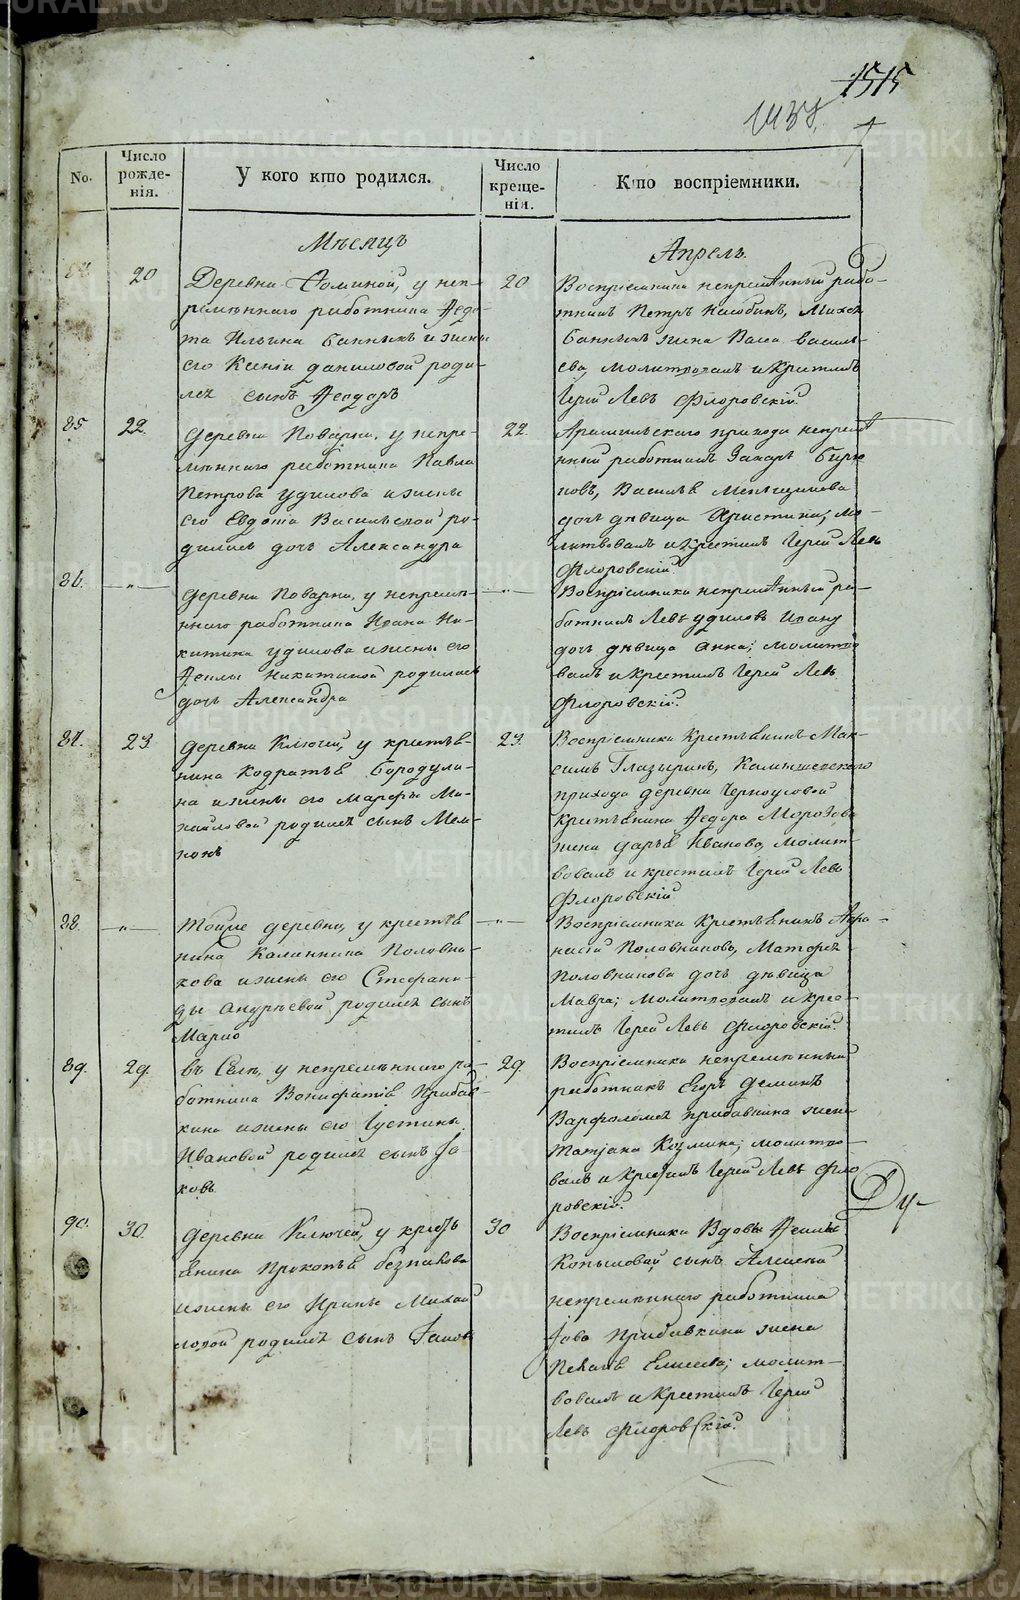 1515
1437.
No.
Число рожде-нія.
У кого кто родился.
Число креще-нія.
Кто воспріемники.
Мѣсяцъ
Апрель.
20
Деревни Фоминой, у неп-
ремѣннаго работника Ѳедо-
та Ильина и жены
его Ксеніи Даниловой роди-
лся сынъ Ѳеодоръ
20
Воспріемники непремѣнный рабо-
тникъ Петръ Михея
жена Василь-
ева, молитвовалъ и крестилъ
Іерей Левъ Флоровскій.
85
22.
Деревни Поварни, у непре-
мѣннаго работника Павла
Петрова Удилова и жены
его Евдокіи Васильевой ро-
дилась дочь Александра
22.
Арамильскаго прихода непремѣ
нный работникъ Захаръ Бирю
ковъ, Василья
дочь дѣвица Христина; мо-
литвовалъ и крестилъ Іерей Левъ
Флоровскій.
86.
—"—
Деревни Поварни, у непремѣ-
ннаго работника Ивана Ни-
китина Удилова и жены его
Никитиной родилась
дочь Александра
—"—
Воспріемники непремѣнный ра-
ботникъ Левъ Удиловъ Ивану
дочь дѣвица Анна; молитво
валъ и крестилъ Іерей Левъ
Флоровскій.
87.
23
Деревни Ключей, у крестья-
нина Кодратья Бородули-
на и жены его Марфы Ми-
хайловой родился сынъ

23.
Воспріемники Крестьянинъ Мак-
симъ Глазыринъ,
прихода деревни Черноусовой
крестьянина Ѳедора Морозова
жена Дарья Иванова, молит-
вовалъ и крестилъ Іерей Левъ
Флоровскій
88.
—"—
Тойже деревни, у крестья
нина Калинника Половни-
кова и жены его Стефани-
ды Андреевой родился сынъ
Марко
—"—
Воспріемники Крестьянинъ Афа-
насій Половниковъ,
Половникова дочь дѣвица
Мавра; молитвовалъ и крес-
тилъ Іерей Левъ Флоровскій.
89.
29.
въ Селѣ, у непремѣннаго ра-
ботника Вонифатія Прибав-
кина и жены его Іустины
Ивановой родился сынъ Іа
ковъ
29.
Воспріемники непремѣнный
работникъ Егоръ Деминъ
Варфоломея Прибавкина жена
Татіана Козмина; молитво-
валъ и крестилъ Іерей Левъ Фло
ровскій.
Ду-
90.
30.
Деревни Ключей, у кресть
янина Прокопья
и жены его Ирины Михай
ловой родился сынъ Іаковъ
30
Воспріемники Вдовы
Копыловой сынъ Алексей
непремѣннаго работника
Іова Прибавкина жена
Елисеева; молит-
вовалъ и крестилъ Іерей
Левъ Флоровскій.
METRIKI.GASO-URAL.RU